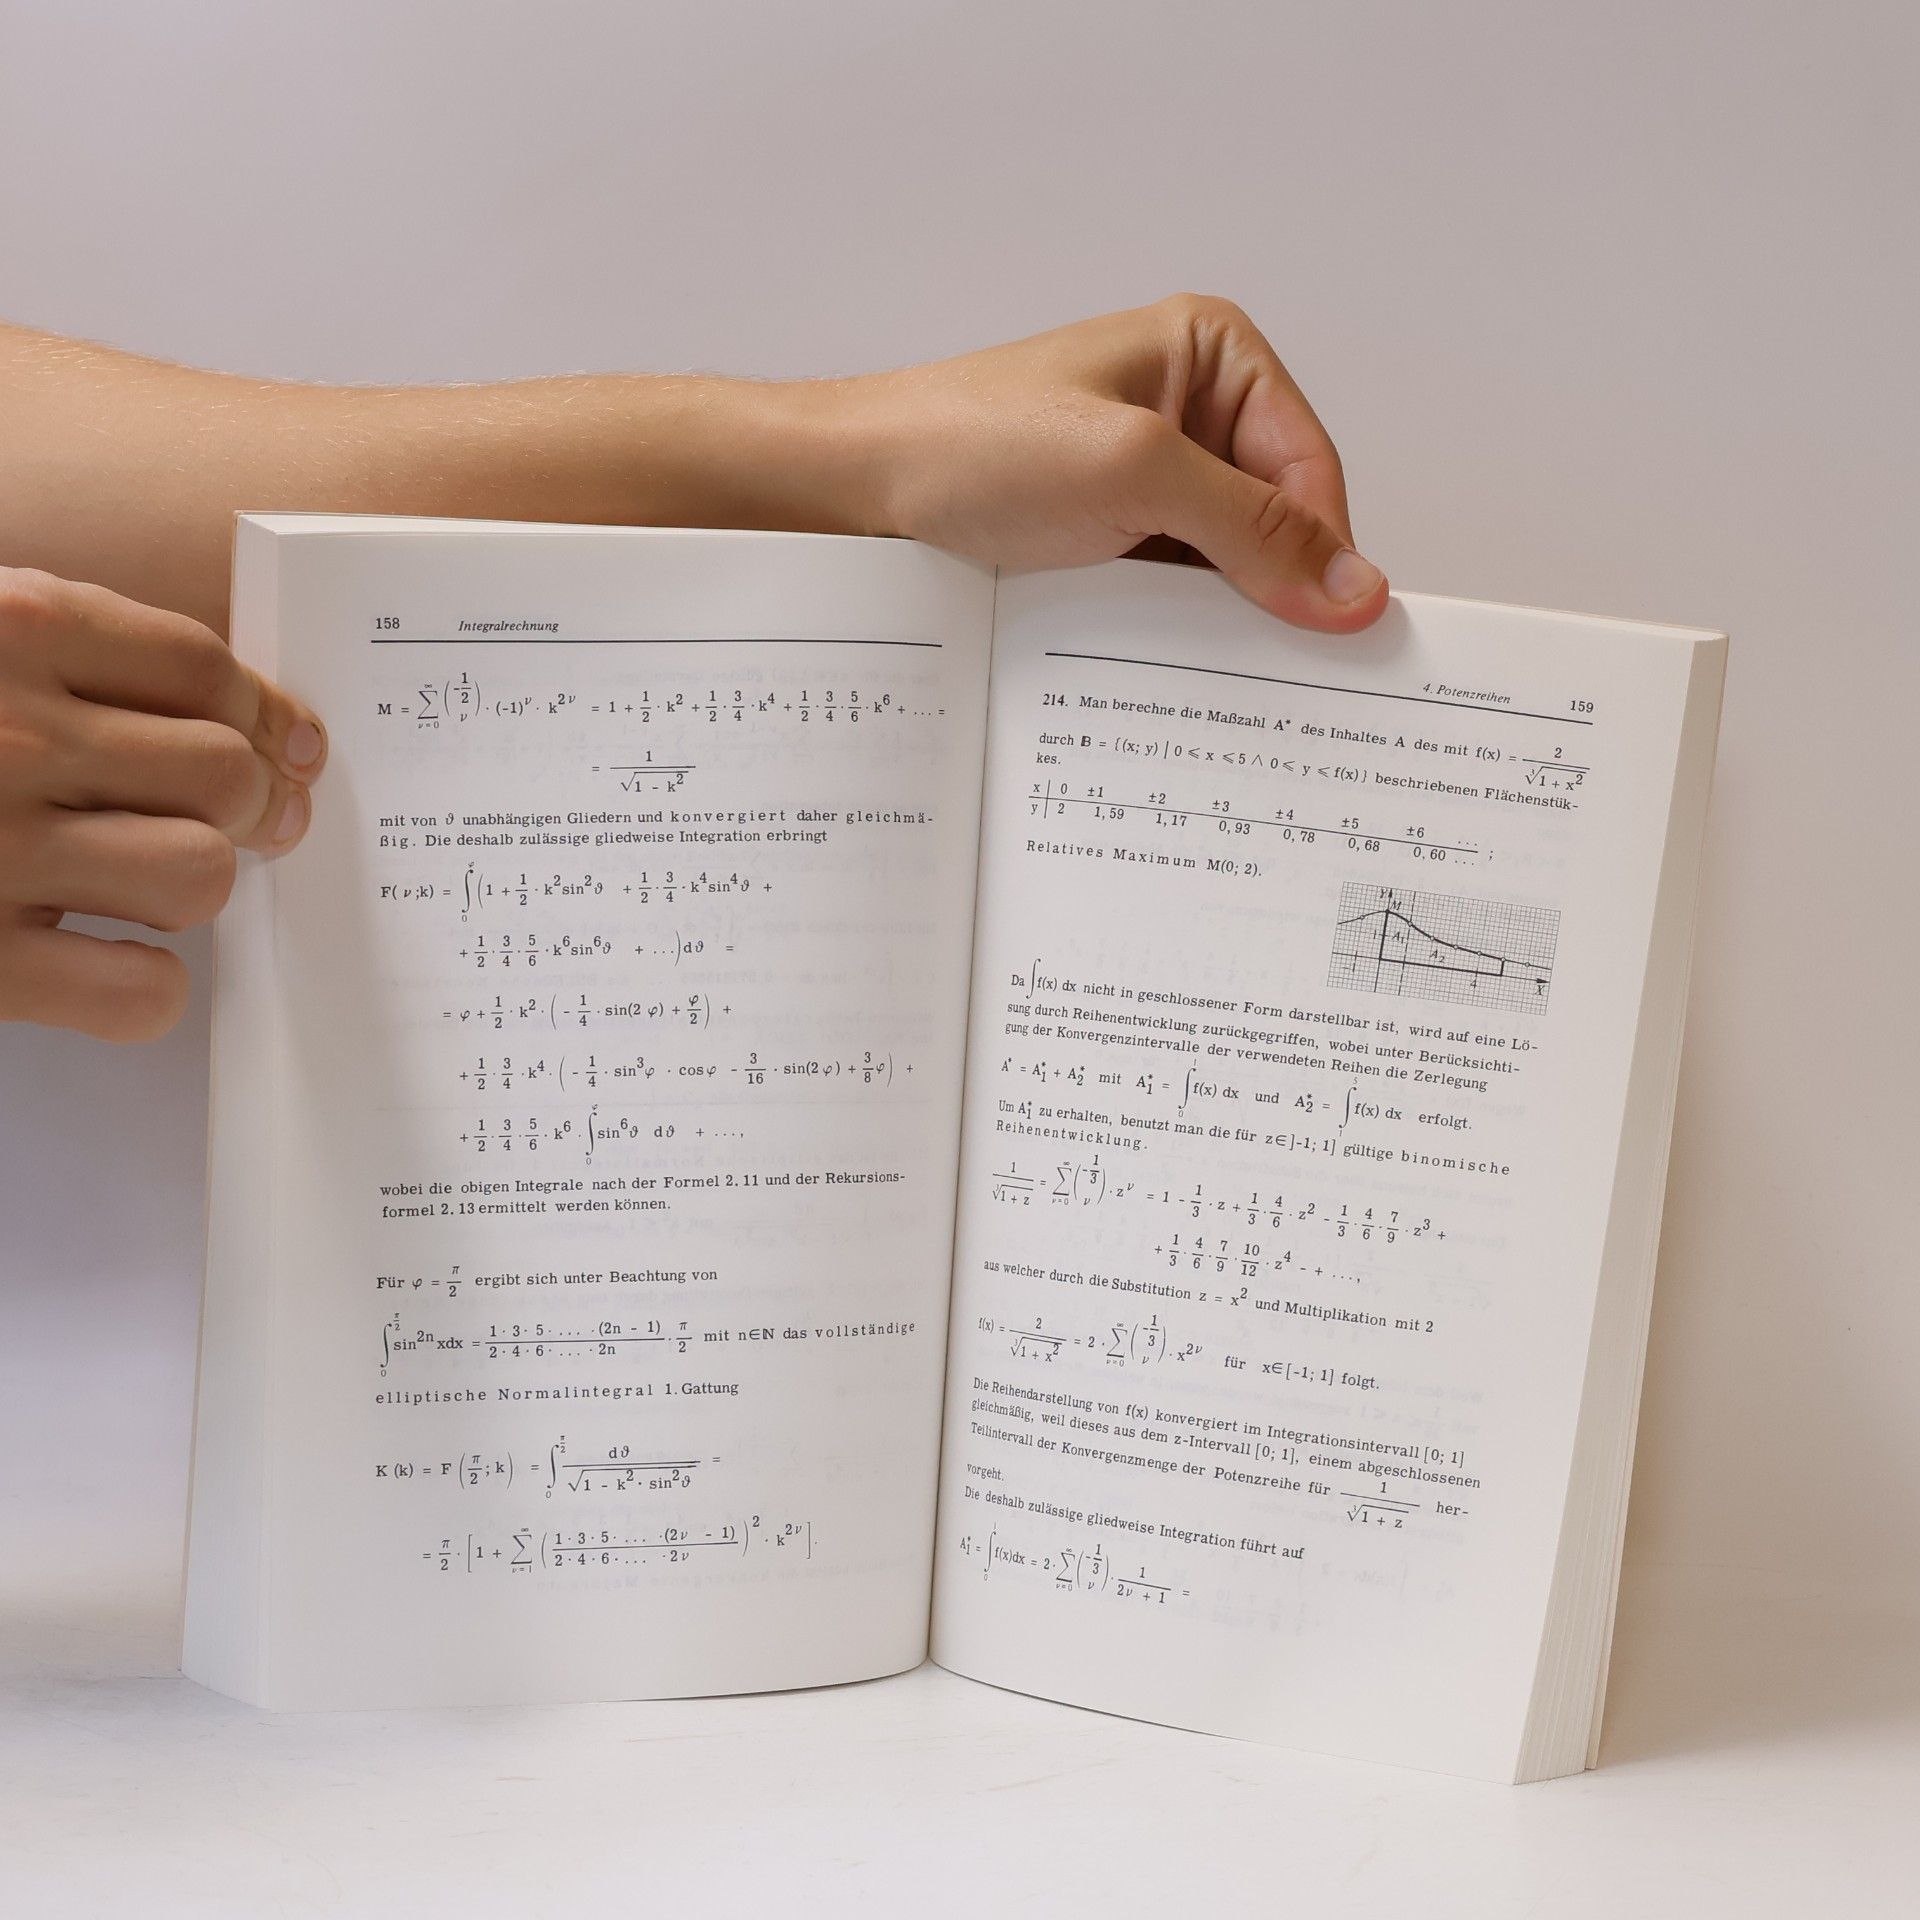 158 Integralrechnung
M = ∑_{ν=0}^{∞} (-1/2 über ν) · (-1)^ν · k^{2ν} = 1 + 1/2 · k² + 1/2 · 3/4 · k⁴ + 1/2 · 3/4 · 5/6 · k⁶ + ... =
= 1/√(1 - k²)
mit von ϑ unabhängigen Gliedern und konvergiert daher gleichmä-
ßig. Die deshalb zulässige gliedweise Integration erbringt
F( ν ;k) = ∫_0^φ (1 + 1/2 · k² sin² ϑ + 1/2 · 3/4 · k⁴ sin⁴ ϑ +
+ 1/2 · 3/4 · 5/6 · k⁶ sin⁶ ϑ + ...) dϑ =
= φ + 1/2 · k² · ( - 1/4 · sin(2 φ) + φ/2 ) +
+ 1/2 · 3/4 · k⁴ · ( - 1/4 · sin³ φ · cos φ - 3/16 · sin(2 φ) + 3/8 φ ) +
+ 1/2 · 3/4 · 5/6 · k⁶ · ∫_0^φ sin⁶ ϑ dϑ + ...,
wobei die obigen Integrale nach der Formel 2.11 und der Rekursions-
formel 2.13 ermittelt werden können.
Für φ = π/2 ergibt sich unter Beachtung von
∫_0^{π/2} sin^{2n} xdx = (1 · 3 · 5 · ... · (2n - 1))/(2 · 4 · 6 · ... · 2n) · π/2 mit n∈ℕ das vollständige
elliptische Normalintegral 1. Gattung
K (k) = F (π/2 ; k) = ∫_0^{π/2} dϑ/√(1 - k² · sin² ϑ) =
= π/2 · [1 + ∑_{ν=1}^{∞} ( (1 · 3 · 5 · ... · (2ν - 1))/(2 · 4 · 6 · ... · 2ν) )² · k^{2ν} ].
4. Potenzreihen 159
214. Man berechne die Maßzahl A* des Inhaltes A des mit f(x) = 2/∛(1 + x²)
durch B = {(x; y) | 0 ⩽ x ⩽ 5 ∧ 0 ⩽ y ⩽ f(x)} beschriebenen Flächenstük-
kes.
x | 0 ±1 ±2 ±3 ±4 ±5 ±6 ...
y | 2 1,59 1,17 0,93 0,78 0,68 0,60 ... ;
Relatives Maximum M(0; 2).
Y M
1 A₁ A₂
1 4 X
Da ∫f(x) dx nicht in geschlossener Form darstellbar ist, wird auf eine Lö-
sung durch Reihenentwicklung zurückgegriffen, wobei unter Berücksichti-
gung der Konvergenzintervalle der verwendeten Reihen die Zerlegung
A* = A₁* + A₂* mit A₁* = ∫_0^1 f(x) dx und A₂* = ∫_1^5 f(x) dx erfolgt.
Um A₁* zu erhalten, benutzt man die für z∈]-1; 1] gültige binomische
Reihenentwicklung.
1/∛(1 + z) = ∑_{ν=0}^{∞} (-1/3 über ν) · z^ν = 1 - 1/3 · z + 1/3 · 4/6 · z² - 1/3 · 4/6 · 7/9 · z³ +
+ 1/3 · 4/6 · 7/9 · 10/12 · z⁴ - + ...,
aus welcher durch die Substitution z = x² und Multiplikation mit 2
f(x) = 2/∛(1 + x²) = 2 · ∑_{ν=0}^{∞} (-1/3 über ν) · x^{2ν} für x∈[-1; 1] folgt.
Die Reihendarstellung von f(x) konvergiert im Integrationsintervall [0; 1]
gleichmäßig, weil dieses aus dem z-Intervall [0; 1], einem abgeschlossenen
Teilintervall der Konvergenzmenge der Potenzreihe für 1/∛(1 + z) her-
vorgeht.
Die deshalb zulässige gliedweise Integration führt auf
A₁* = ∫_0^1 f(x)dx = 2 · ∑_{ν=0}^{∞} (-1/3 über ν) · 1/(2ν + 1) =